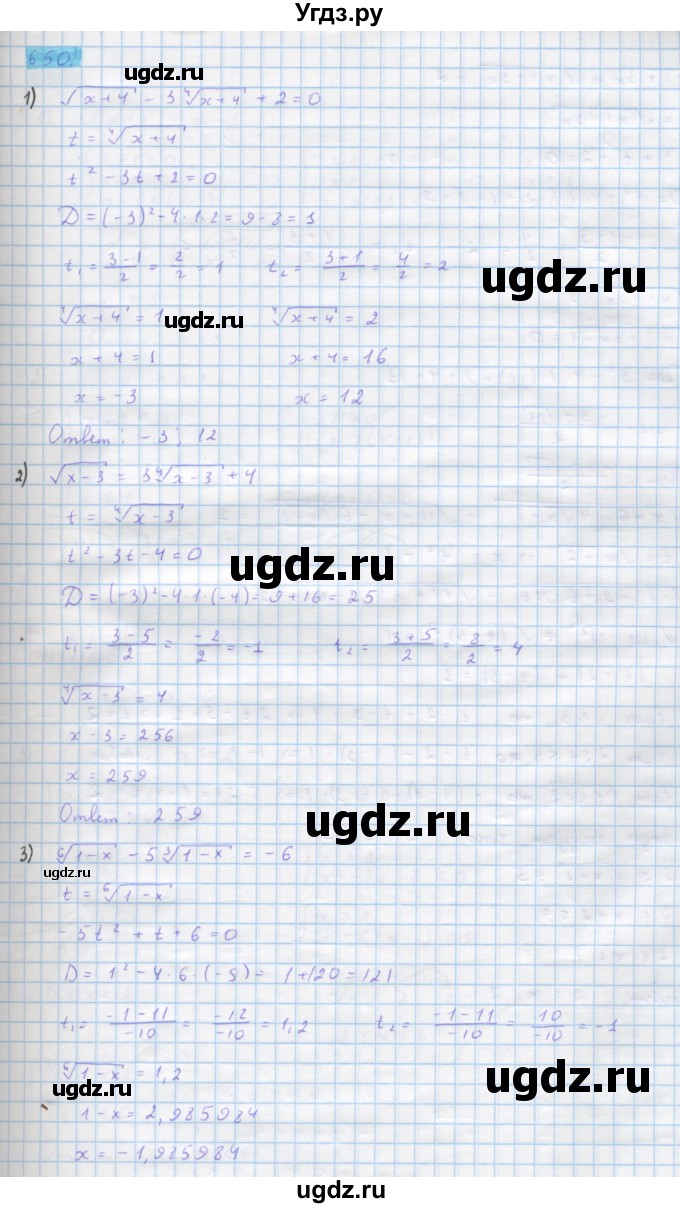 Угдз.ру
650.
ugdz.ru
1) √(x+4) - 3∜(x+4) + 2 = 0
t = ∜(x+4)
t² - 3t + 2 = 0
D = (-3)² - 4·1·2 = 9 - 8 = 1
t₁ = (3-1)/2 = 2/2 = 1 t₂ = (3+1)/2 = 4/2 = 2
ugdz.ru
∜(x+4) = 1 ∜(x+4) = 2
ugdz.ru
x + 4 = 1 x + 4 = 16
x = -3 x = 12
Ответ: -3; 12
2) √(x-3) = 3∜(x-3) + 4
t = ∜(x-3)
t² - 3t - 4 = 0
ugdz.ru
D = (-3)² - 4·1·(-4) = 9 + 16 = 25
t₁ = (3-5)/2 = -2/2 = -1 t₂ = (3+5)/2 = 8/2 = 4
∜(x-3) = 4
x - 3 = 256
x = 259
Ответ: 259
ugdz.ru
3) ⁶√(1-x) - 5∛(1-x) = -6
ugdz.ru
t = ⁶√(1-x)
-5t² + t + 6 = 0
D = 1² - 4·6·(-5) = 1+120 = 121
t₁ = (-1-11)/-10 = -12/-10 = 1,2 t₂ = (-1-11)/-10 = 10/-10 = -1
⁶√(1-x) = 1,2
ugdz.ru
ugdz.ru
1 - x = 2,985984
x = -1,985984
ugdz.ru